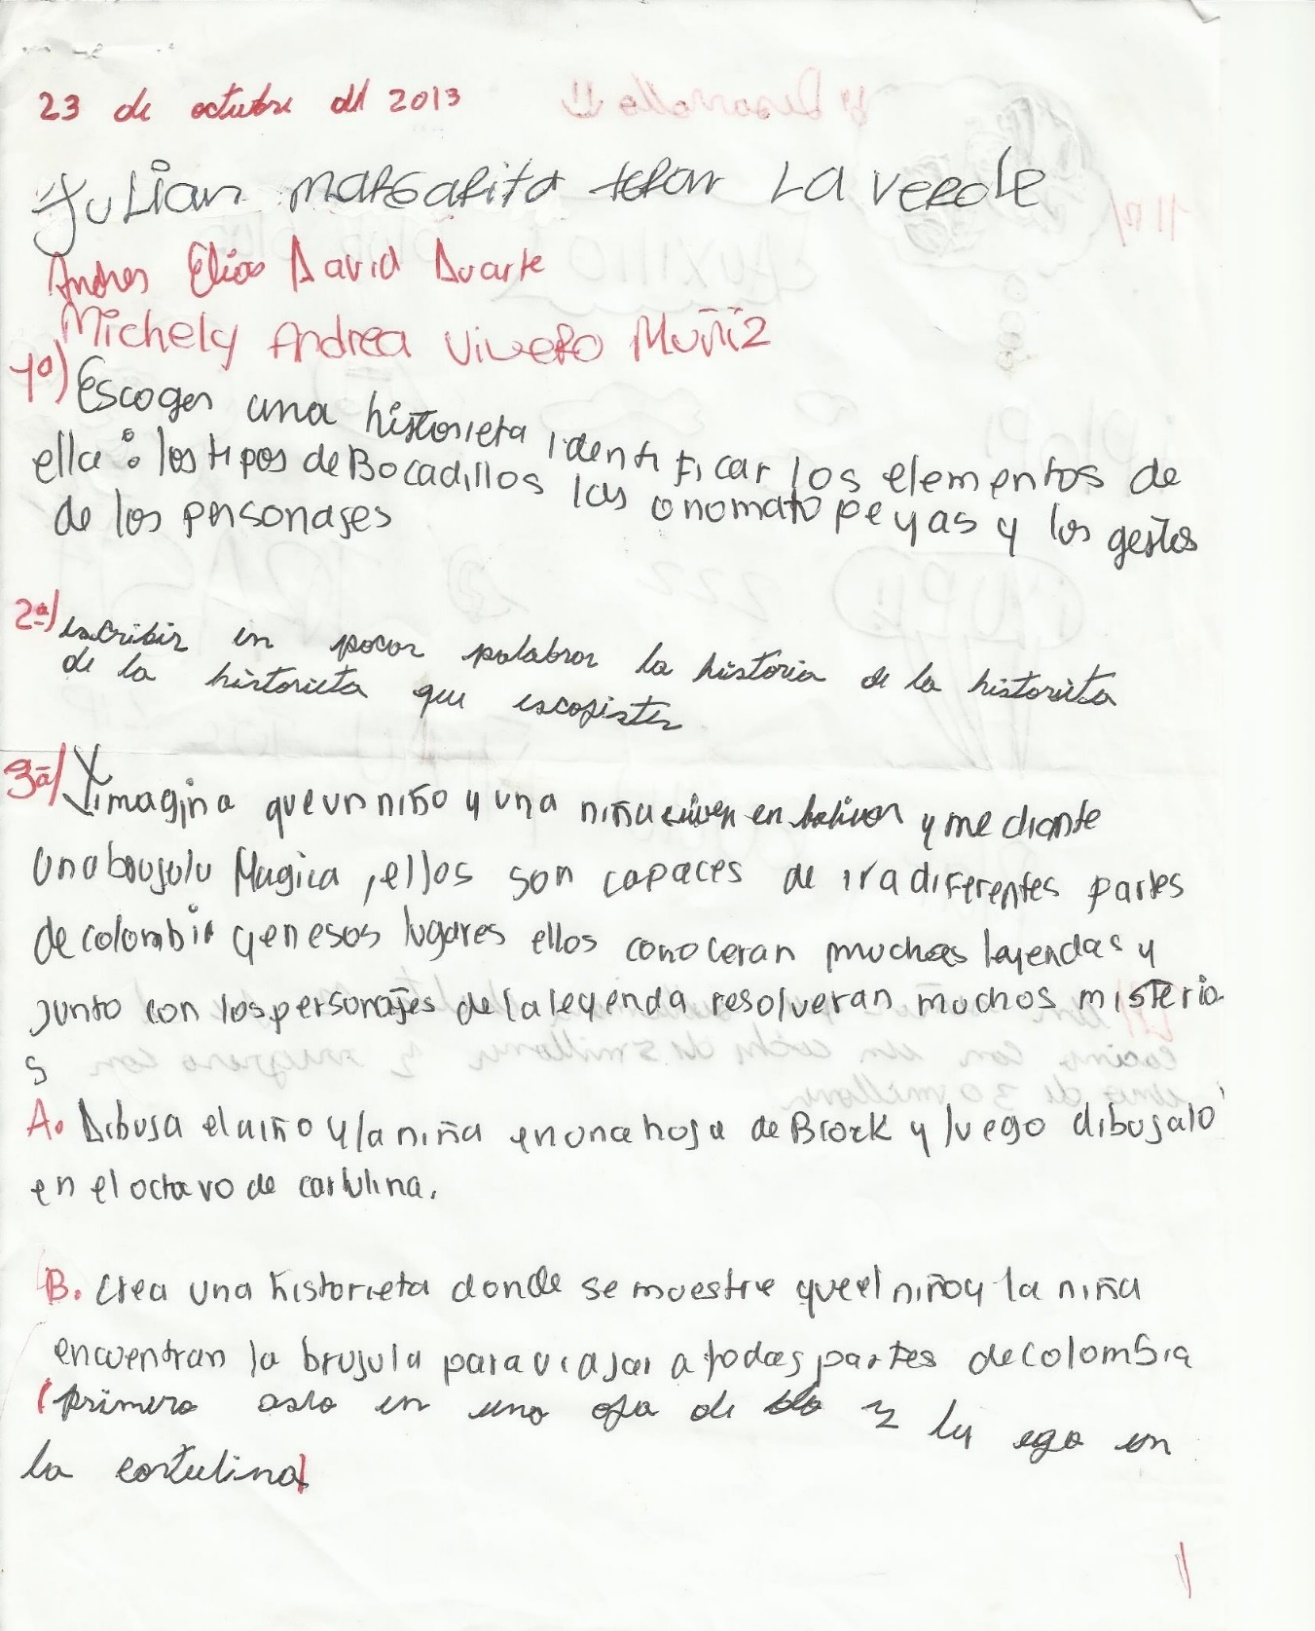 23 de octubre del 2013
Julian Margarita tefar La verde
Andres Elias David Duarte
Michely Andrea Vivero Muñiz
1º) Escoger una historieta identificar los elementos de
ella: los tipos de Bocadillos las onomatopeyas y los gestos
de los personajes
2ª) escribir en pocas palabras la historia de la historieta
de la historieta que escogister
3ª) Y imagina que un niño y una niña viven en bolivar y mediante
una brujula Magica, ellos son capaces de ir a diferentes partes
de colombia y en esos lugares ellos conoceran muchas leyendas y
junto con los personajes de la leyenda resolveran muchos misterio
s
A. Dibuja el niño y la niña en una hoja de Brock y luego dibujalo
en el octavo de cartulina.
B. Crea una historieta donde se muestre que el niño y la niña
encuentran la brujula para viajar a todas partes de colombia
(primero aslo en una oja de blo y lu ego en
la cartulina)